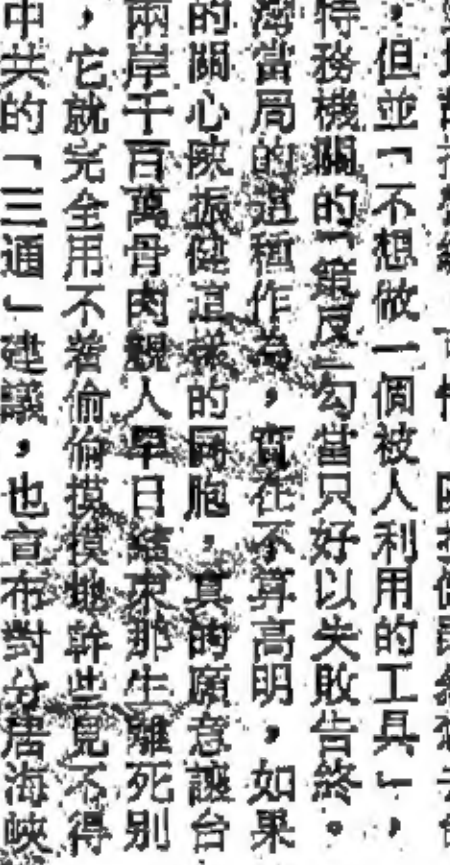 ，但並「不想做一個被人利用的工具」，
特務機關的「策反」勾當只好以失敗告終。
灣當局的這種作為，實在不算高明，如果
的關心陳振健這樣的同胞，真的願意讓台
兩岸千百萬骨肉親人早日結束那生離死別
，它就完全用不着偷偷摸摸地幹些見不得
中共的「三通」建議，也宣布對分居海峽